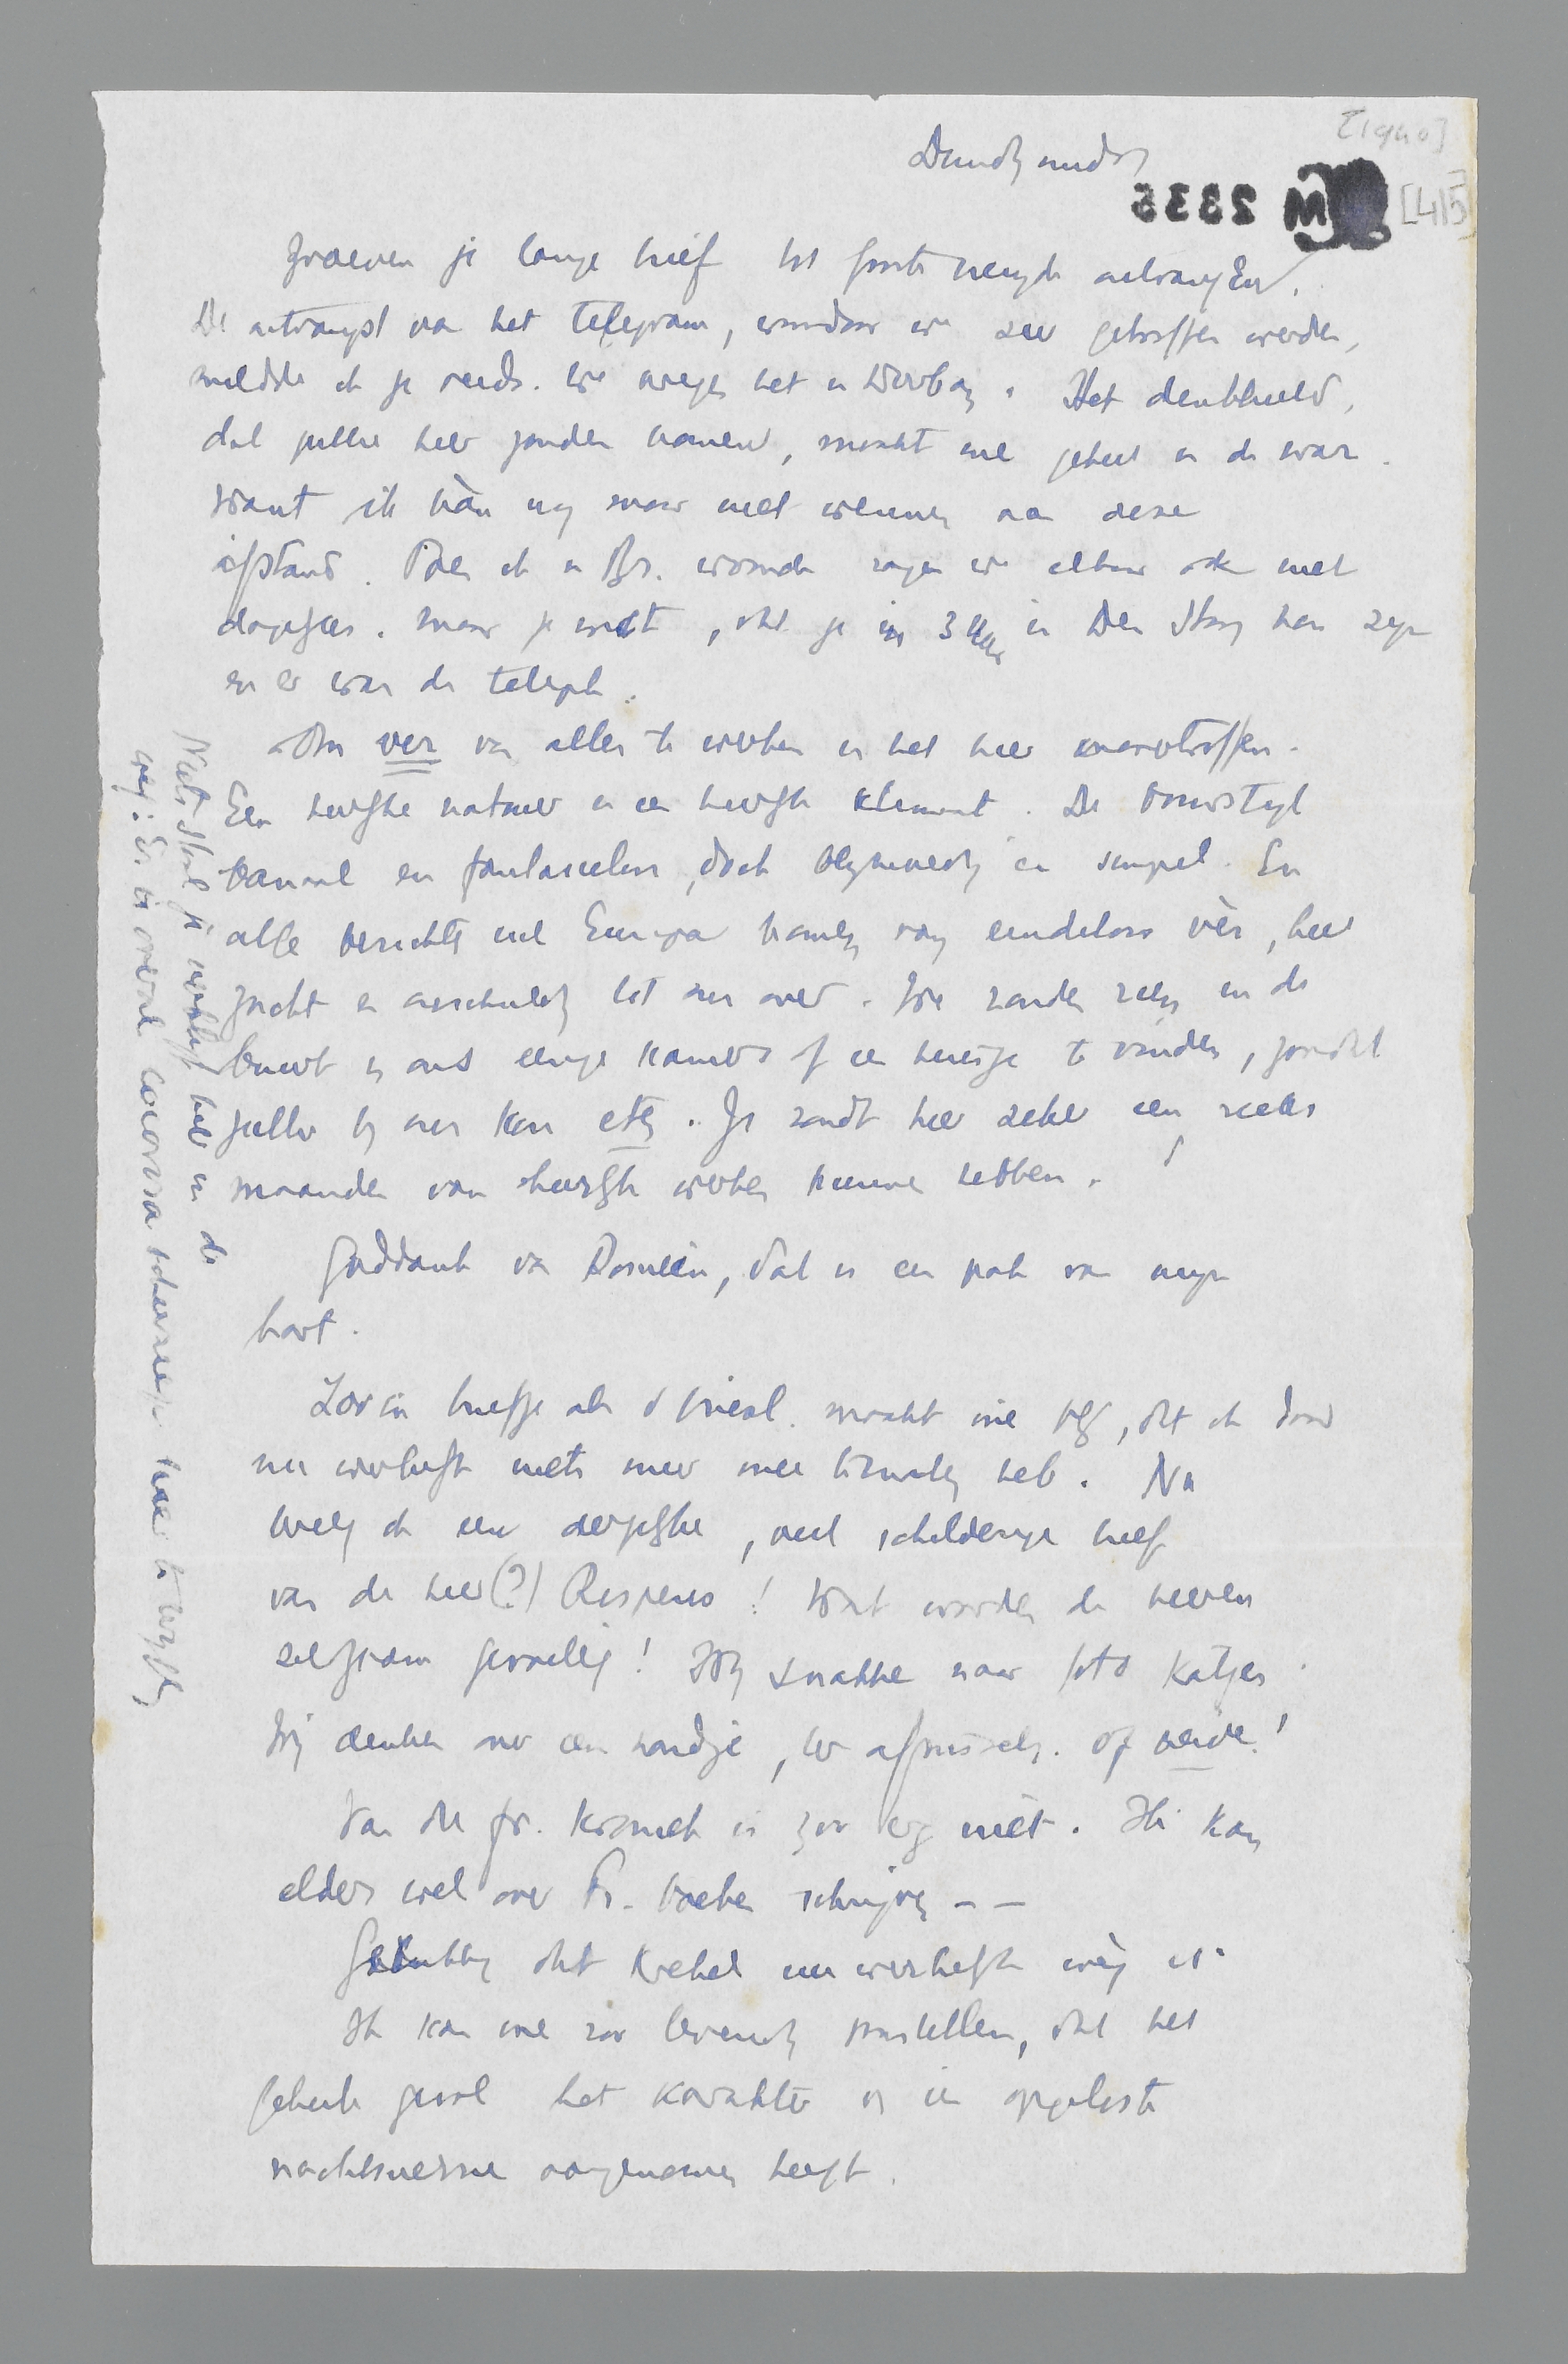 [1940]
Dinsdag middag
M 2335
[4]5
Zooeven je lange brief tot groote vreugde ontvangen.
De ontvangst van het telegram, waardoor we zeer getroffen werden,
meldde ik je reeds. We kregen het in Durban. Het denkbeeld,
dat jullie hier zouden komen, maakt me geheel in de war.
Want ik kàn nog maar niet wennen aan deze
afstand. Toen ik in Br. woonde zagen we elkaar ook niet
dagelijks. Maar je wist, dat je in 3 uur in Den Haag kon zijn
en er was de teleph.
Om ver van alles te werken is het hier onovertroffen.
Een heerlijke natuur en een heerlijk klimaat. De bouwstijl
banaal en fantasieloos, doch blijmoedig en simpel. En
alle berichten uit Europa komen van eindeloos vèr, hier
zacht en onschuldig tot ons over. We zouden zelfs in de
buurt bij ons eenige kamers of een huisje te vinden, zoodat
jullie bij ons kon eten. Je zoudt hier zeker een reeks
maanden van heerlijk werken kunnen hebben.
Goddank van Romein, dat is een pak van mijn
hart.
Zoo'n briefje als d Vriesl. maakt me blij, dat ik daar
nu werkelijk niets meer mee te maken heb. Nu
kreeg ik een dergelijke, veel schilderige brief
van de heer(?) Respens! Wat worden de heeren
zeldzaam gevoelig! Wij snakken naar foto Katjes
Wij denken over een hondje, ter afwisseling. Of beide!
Van die fr. kroniek is zoo erg niet. Hij kan
elders wel over Fr. boeken schrijven – –
Gelukkig dat Krekel nu werkelijk wèg is.
Ik kan me zoo levendig voorstellen, dat het
geheele geval het karakter v een opgeloste
nachtmerrie aangenomen heeft.
Niets staat je werkelijk hier in de
weg: Er is overal couvra scheerzeep hier te krijgen